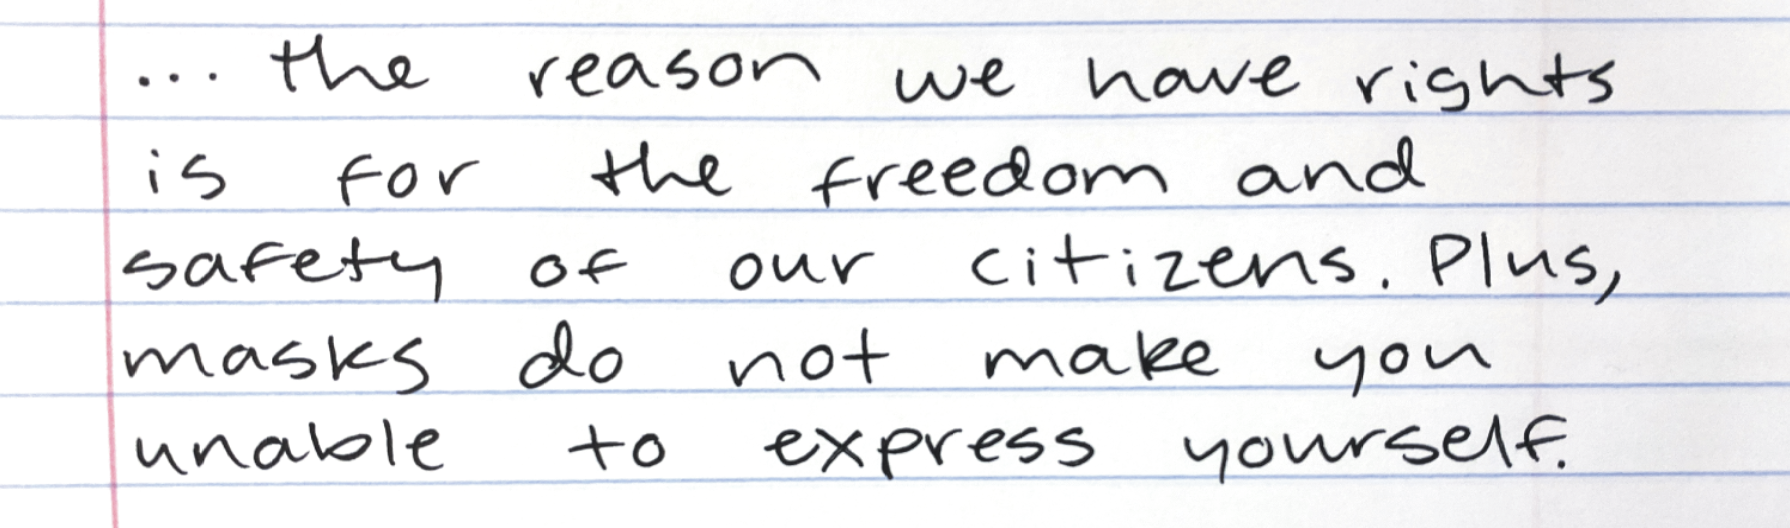 ... the reason we have rights
is for the freedom and
safety of our citizens. Plus,
masks do not make you
unable to express yourself.